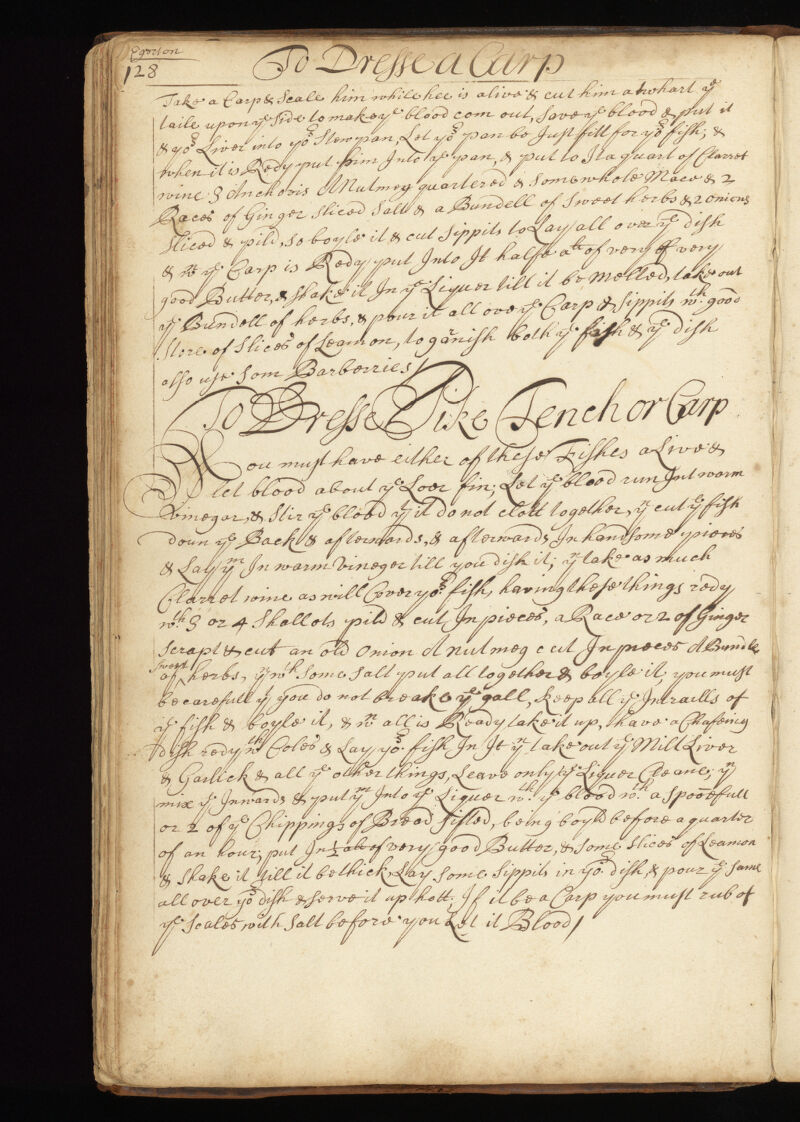 128
To Dresse a Carp
Take a Carp & Scale him while hee is alive & cut him a thwart yᵉ
taile upon yᵉ side to make yᵉ blood com out, Save yᵉ blood & put it
& yoʳ Liver into yoʳ Stewpan, Let yoʳ pan be Just fitt for yoʳ fish, &
when it is Redy put him Into yᵉ pan, & put to It a quart of Clarret
wine 3 Anchovis A Nutmeg quartered & Some whole Mace & 2
Races of Ginger Sliced Salt & a Bundell of Sweet herbs & 2 onions
Sliced & pild, So boyle it & cut Sippits to Lay all over yᵉ dish
& wⁿ yᵉ Carp is Redy put Into It halfe a lb of very of very
good Butter, & Shake it In yᵉ Liquer till it be Melted, take out
yᵉ Bundell of herbs, & pour it all over yᵉ Carp & Sippits wᵗʰ good
Store of Slices of Leamon, to garnish both yᵉ fish & yᵉ dish
also use Som Barberries /
To Dresse Pike Tench or Carp
You must have either of these Fishes aLive &
let blood about yᵉ Loer fin; Let yᵉ blood run Int warm
vinegar, & Stir yᵉ blood yᵗ it do not clott together, yⁿ cut yᵉ fish
doun yᵉ Back & afterwards, & afterwards In handsome pieces
& Lay yᵐ In warm vineger till you dish it; yⁿ take as much
Clarret wine as will Cover yoʳ fish, having these things redy
wᵗʰ 3 or 4 Shallots pild & cut In pieces, a Race or 2 of Ginger
Scrapt & cut an old onion A nutmeg cut In pieces A Bundle
of Sweet herbs, yⁿ wᵗʰ Some Salt put all together & boyle it, you must
be carefull yᵗ you do not breake yᵉ gall, Keep all yᵉ Intraills of
yᵉ fish & boyle it, & wⁿ all is Ready take it up, have a Chafeing
dish redy wᵗʰ Coles & Lay yoʳ fish In It yⁿ take out yᵉ Milt Liver
& Garlick & all yᵉ other things, Leave only yᵉ Liquer Cleane; yⁿ
mix yᵉ Inwards & put yᵐ Into yᵉ Liquer wᵗʰ yᵉ blood wᵗʰ a Spoonfull
or 2 of yᵉ Chippings of Bread Sifted, being boyld before a quarter
of an hour, put In ½ a lb of very good Butter, & Some Slices of Leamon
& Shake it till it be thick, Lay Some Sippits in yoʳ dish, & pour yᵉ Same
all over yoʳ dish & serve it up hott; If it be a Carp you must rub of
yᵉ Scales with Salt before you Let it Blood /